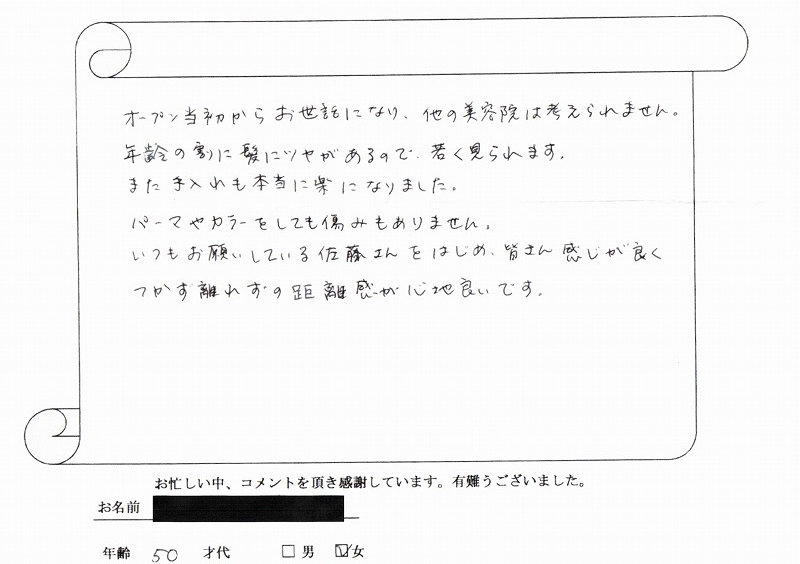 オープン当初からお世話になり、他の美容院は考えられません。
年齢の割に髪にツヤがあるので、若く見られます。
また手入れも本当に楽になりました。
パーマやカラーをしても傷みもありません。
いつもお願いしている佐藤さんをはじめ、皆さん感じが良く
つかず離れずの距離感が心地良いです。
お忙しい中、コメントを頂き感謝しています。有難うございました。
お名前
年齢 50 才代 □男 ☑女